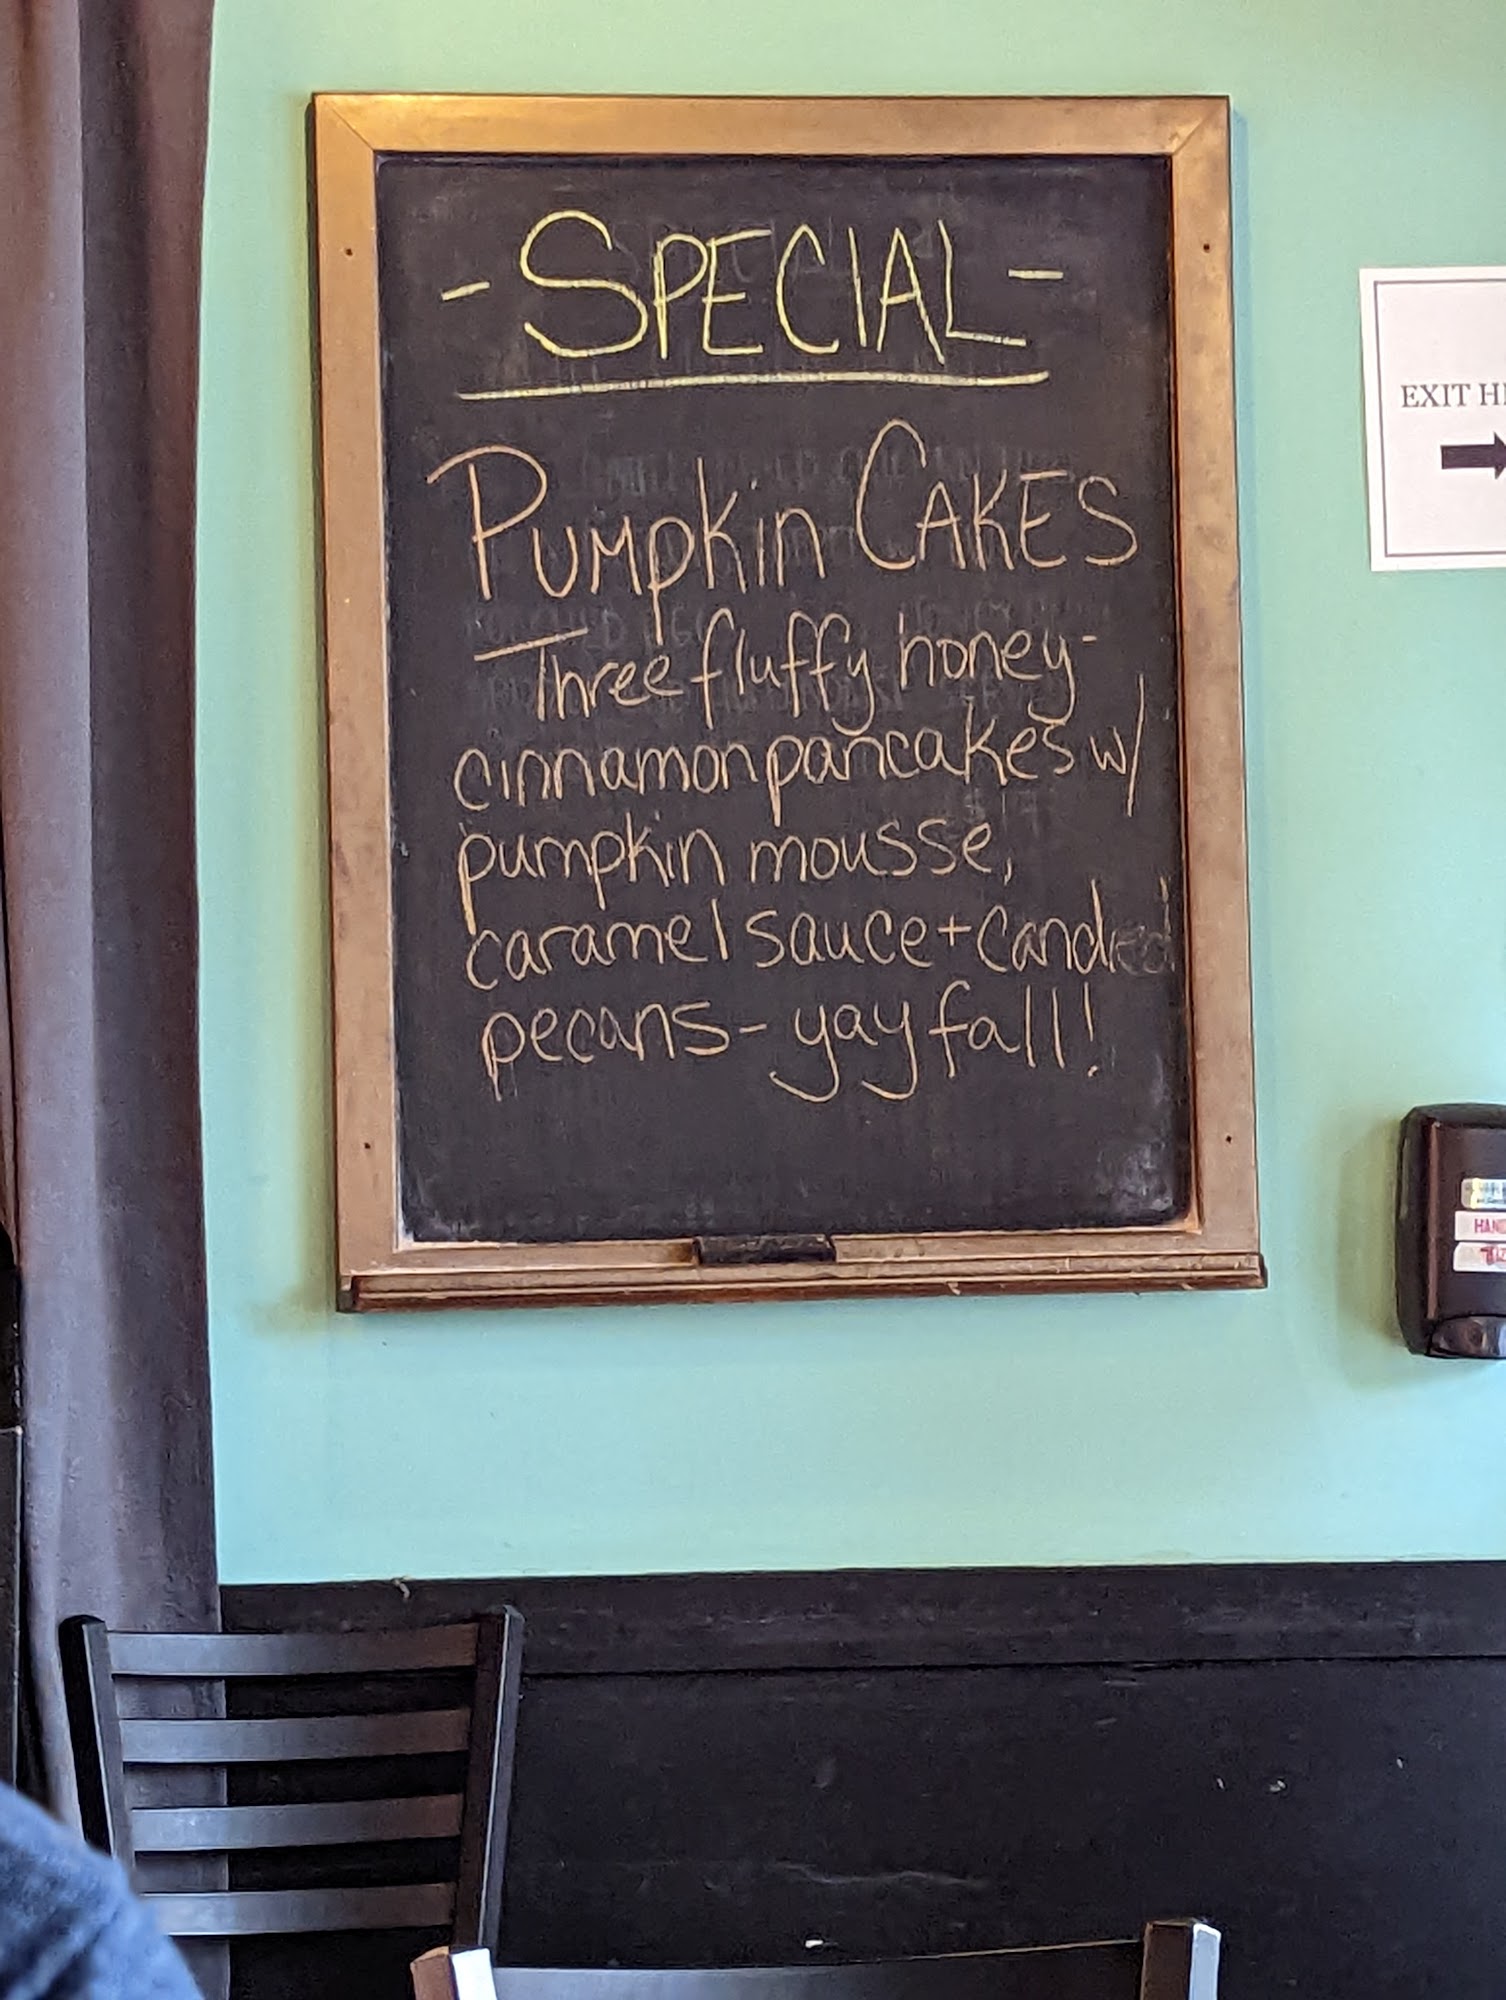 - SPECIAL -
PUMpkin CAKES
Three fluffy honey-
cinnamon pancakes w/
pumpkin mousse,
caramel sauce + candied
pecans - yay fall!
EXIT